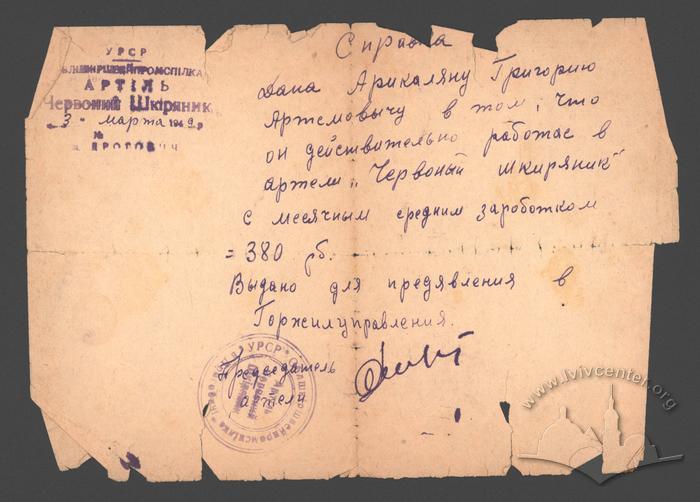 УРСР
АРТІЛЬ
Червоний Шкіряник
3 - марта 1949 р
№
м. ДРОГОБИЧ
Справка
Дана Арикаляну Григорию
Артемовычу в том, что
он действительно работае в
артели „Червоный шкиряник"
с месячным средним зароботком
= 380 рб.
Выдано для предявления в
Горжилуправления.
Председатель
артели
УРСР
Артіль
www.lvivcenter.org